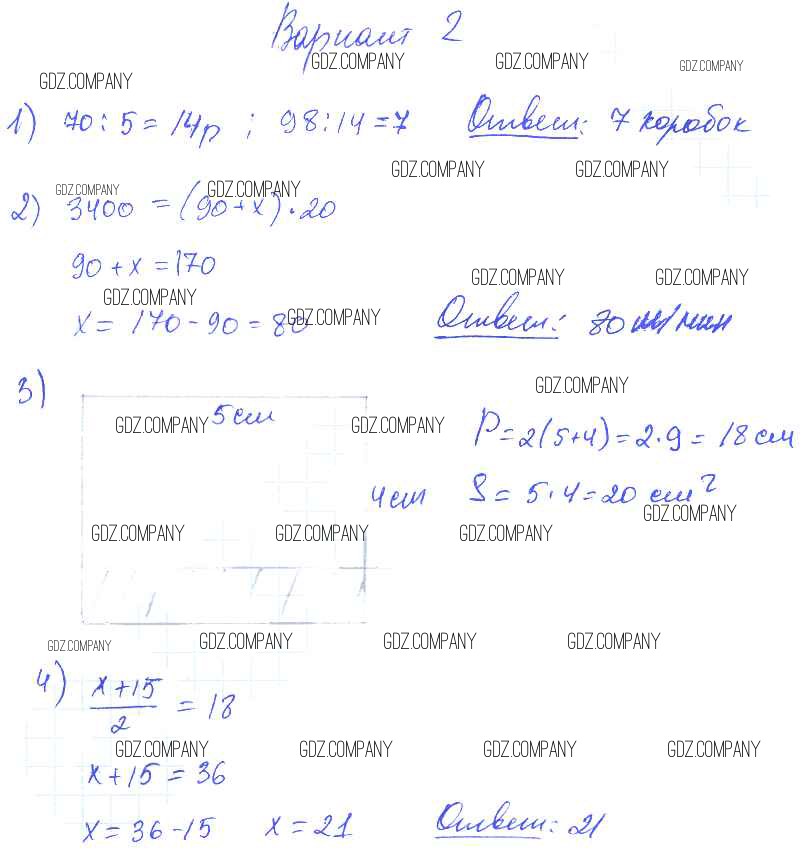 Вариант 2
GDZ.COMPANY GDZ.COMPANY GDZ.COMPANY
GDZ.COMPANY
1) 70 : 5 = 14р ; 98 : 14 = 7 Ответ: 7 коробок
GDZ.COMPANY GDZ.COMPANY
GDZ.COMPANY GDZ.COMPANY
2) 3400 = (90 + x) · 20
90 + x = 170
GDZ.COMPANY GDZ.COMPANY
GDZ.COMPANY GDZ.COMPANY
x = 170 - 90 = 80 Ответ: 80 м/мин
3)
GDZ.COMPANY
5 см
GDZ.COMPANY GDZ.COMPANY
P = 2(5+4) = 2 · 9 = 18 см
4 см S = 5 · 4 = 20 см²
GDZ.COMPANY
GDZ.COMPANY GDZ.COMPANY GDZ.COMPANY
GDZ.COMPANY GDZ.COMPANY GDZ.COMPANY GDZ.COMPANY
4) x + 15
2
= 18
GDZ.COMPANY GDZ.COMPANY GDZ.COMPANY GDZ.COMPANY
x + 15 = 36
x = 36 - 15 x = 21 Ответ: 21